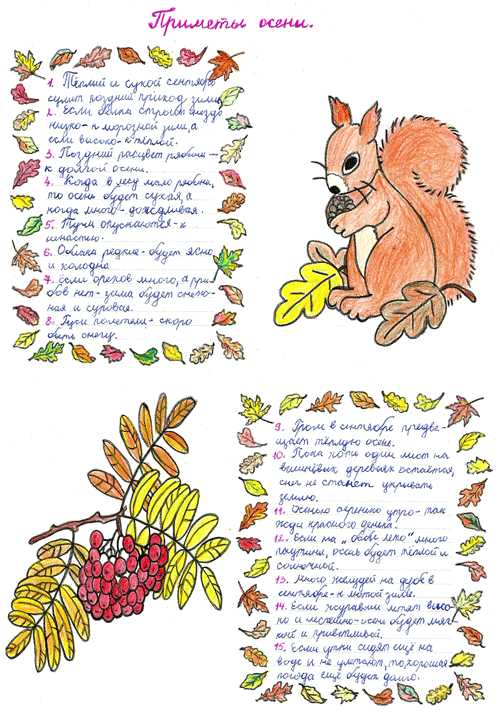 Приметы осени.
1. Теплый и сухой сентябрь
сулит поздний приход зимы.
2. Если белка строит гнездо
низко - к морозной зиме, а
если высоко - к тёплой.
3. Поздний расцвет рябины -
к долгой осени.
4. Когда в лесу мало рябины,
то осень будет сухая, а
когда много - дождливая.
5. Тучи опускаются - к
ненастью.
6. Облака редкие - будет ясно
и холодно
7. Если орехов много, а гри-
бов нет - зима будет снеж-
ная и суровая.
8. Гуси полетели - скоро
быть снегу.
9. Гром в сентябре предве-
щает тёплую осень.
10. Пока хоти один лист на
вишнёвых деревьях остаётся,
снег не станет укрывать
землю.
11. Осенью серенько утро - так
жди красного денька.
12. Если на "бабье лето" много
паутины, осень будет тёплой и
солнечной.
13. Много желудей на дубе в
сентябре - к лютой зиме.
14. Если журавли летят высо-
ко и неспешно - осень будет мяг-
кой и приветливой.
15. Если утки сидят ещё на
воде и не улетают, то хорошая
погода ещё будет долго.